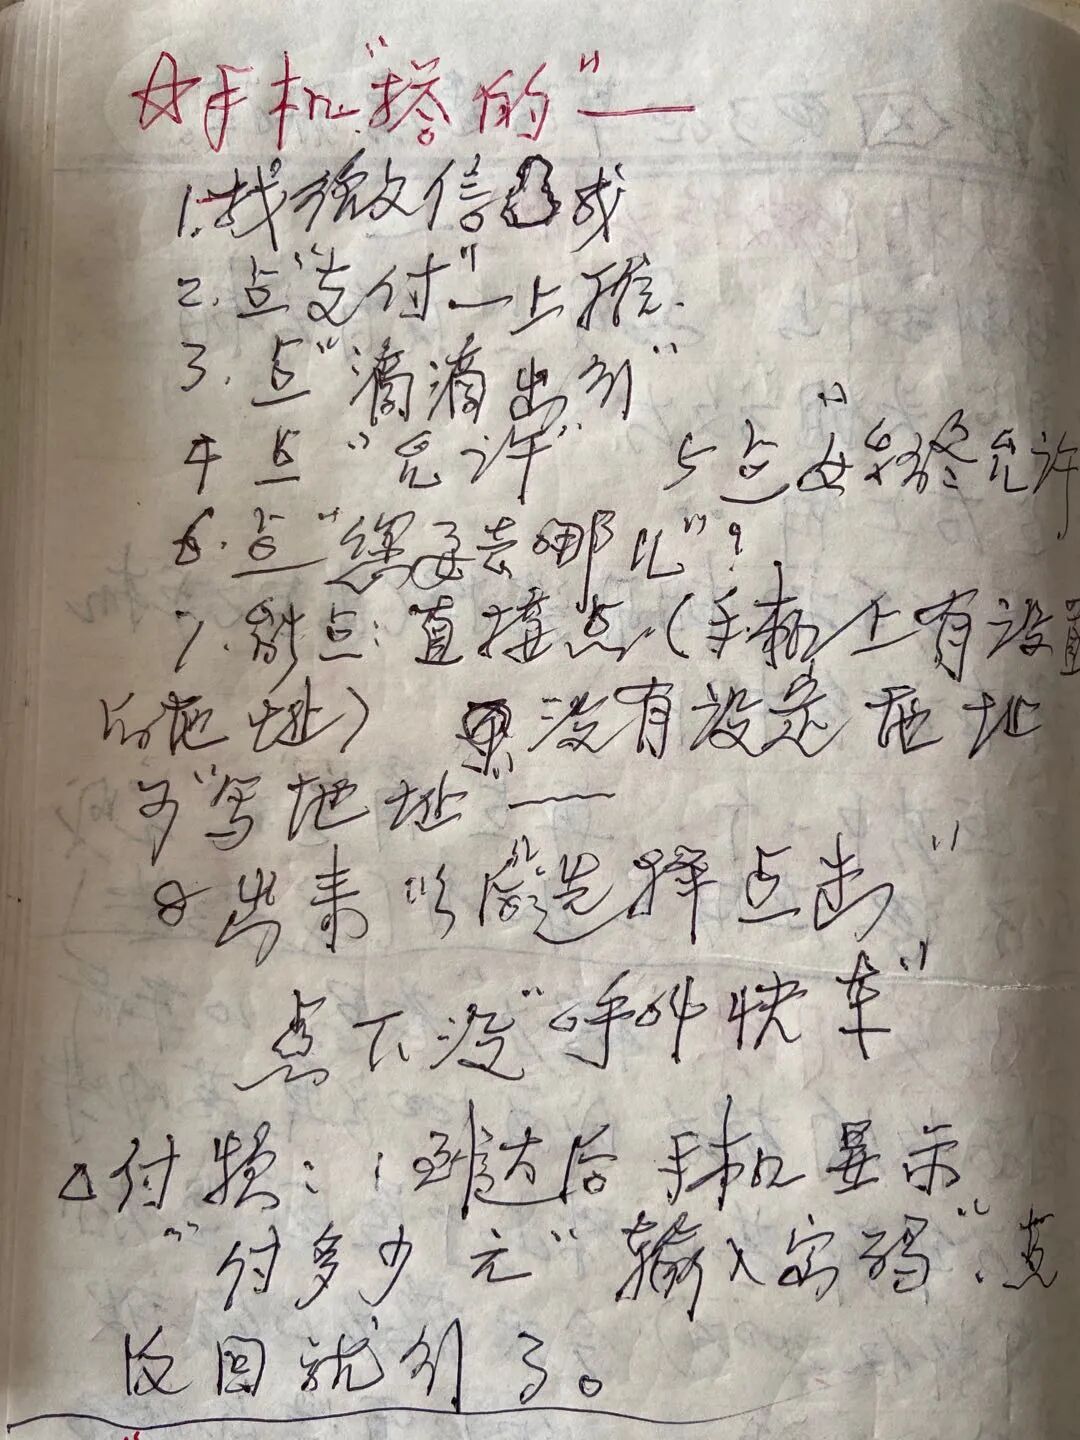 ☆手机"搭的"——
1.找微信 我
2.点"支付"—上推.
3.点"滴滴出行"
4 点"允许" 5点"始终允许
6.点"您要去哪儿"?
7. 点:直接点(手机上有设置
的地址) 没有设定地址
了"写地址"——
8 出来以后"选择点击"
点下没"呼叫快车"
△付损:: 到达后手机显示
"付多少元"输入密码".点
返回就行了。